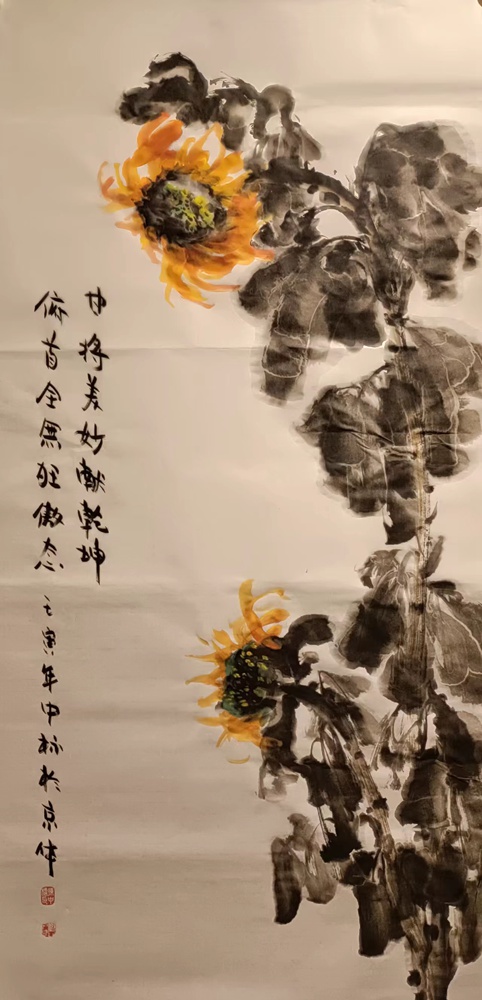 甘将美妙献乾坤
俯首全無狂傲态 壬寅年中秋於京华